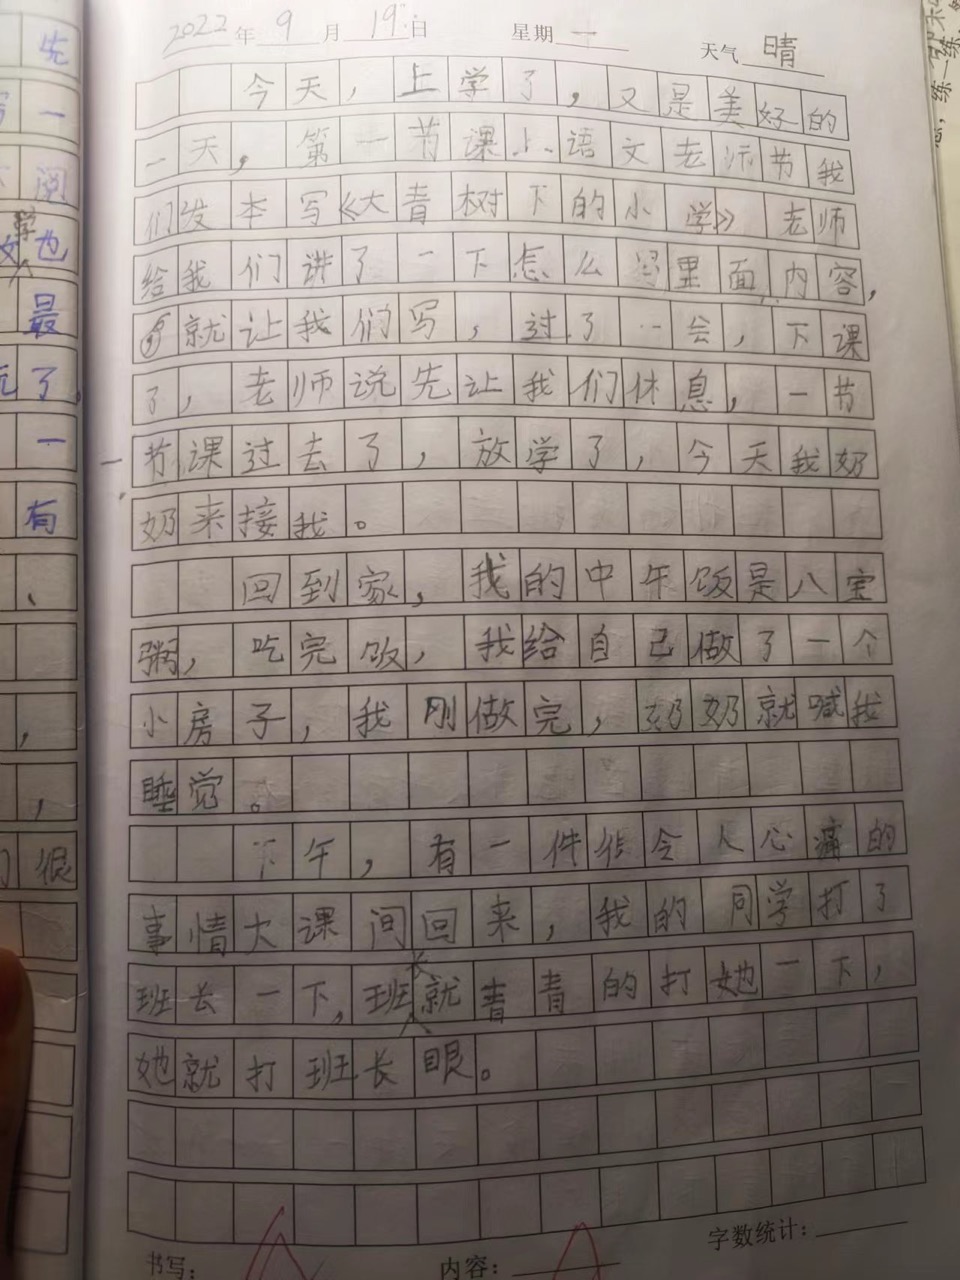 2022年9月19日 星期一 天气晴
今天，上学了，又是美好的
一天，第一节课上语文老师节我
们发本写《大青树下的小学》老师
给我们讲了一下怎么写里面内容，
就让我们写，过了一会，下课
了，老师说先让我们休息，一节
一节课过去了，放学了，今天我奶
奶来接我。
回到家，我的中午饭是八宝
粥，吃完饭，我给自己做了一个
小房子，我刚做完，奶奶就喊我
睡觉。
下午，有一件令人心痛的
事情大课间回来，我的同学打了
班长一下，班长就青青的打她一下，
她就打班长眼。
书写： 内容： 字数统计：
先
一
阅
学
也
最
了。
一
有
、
，
，
很